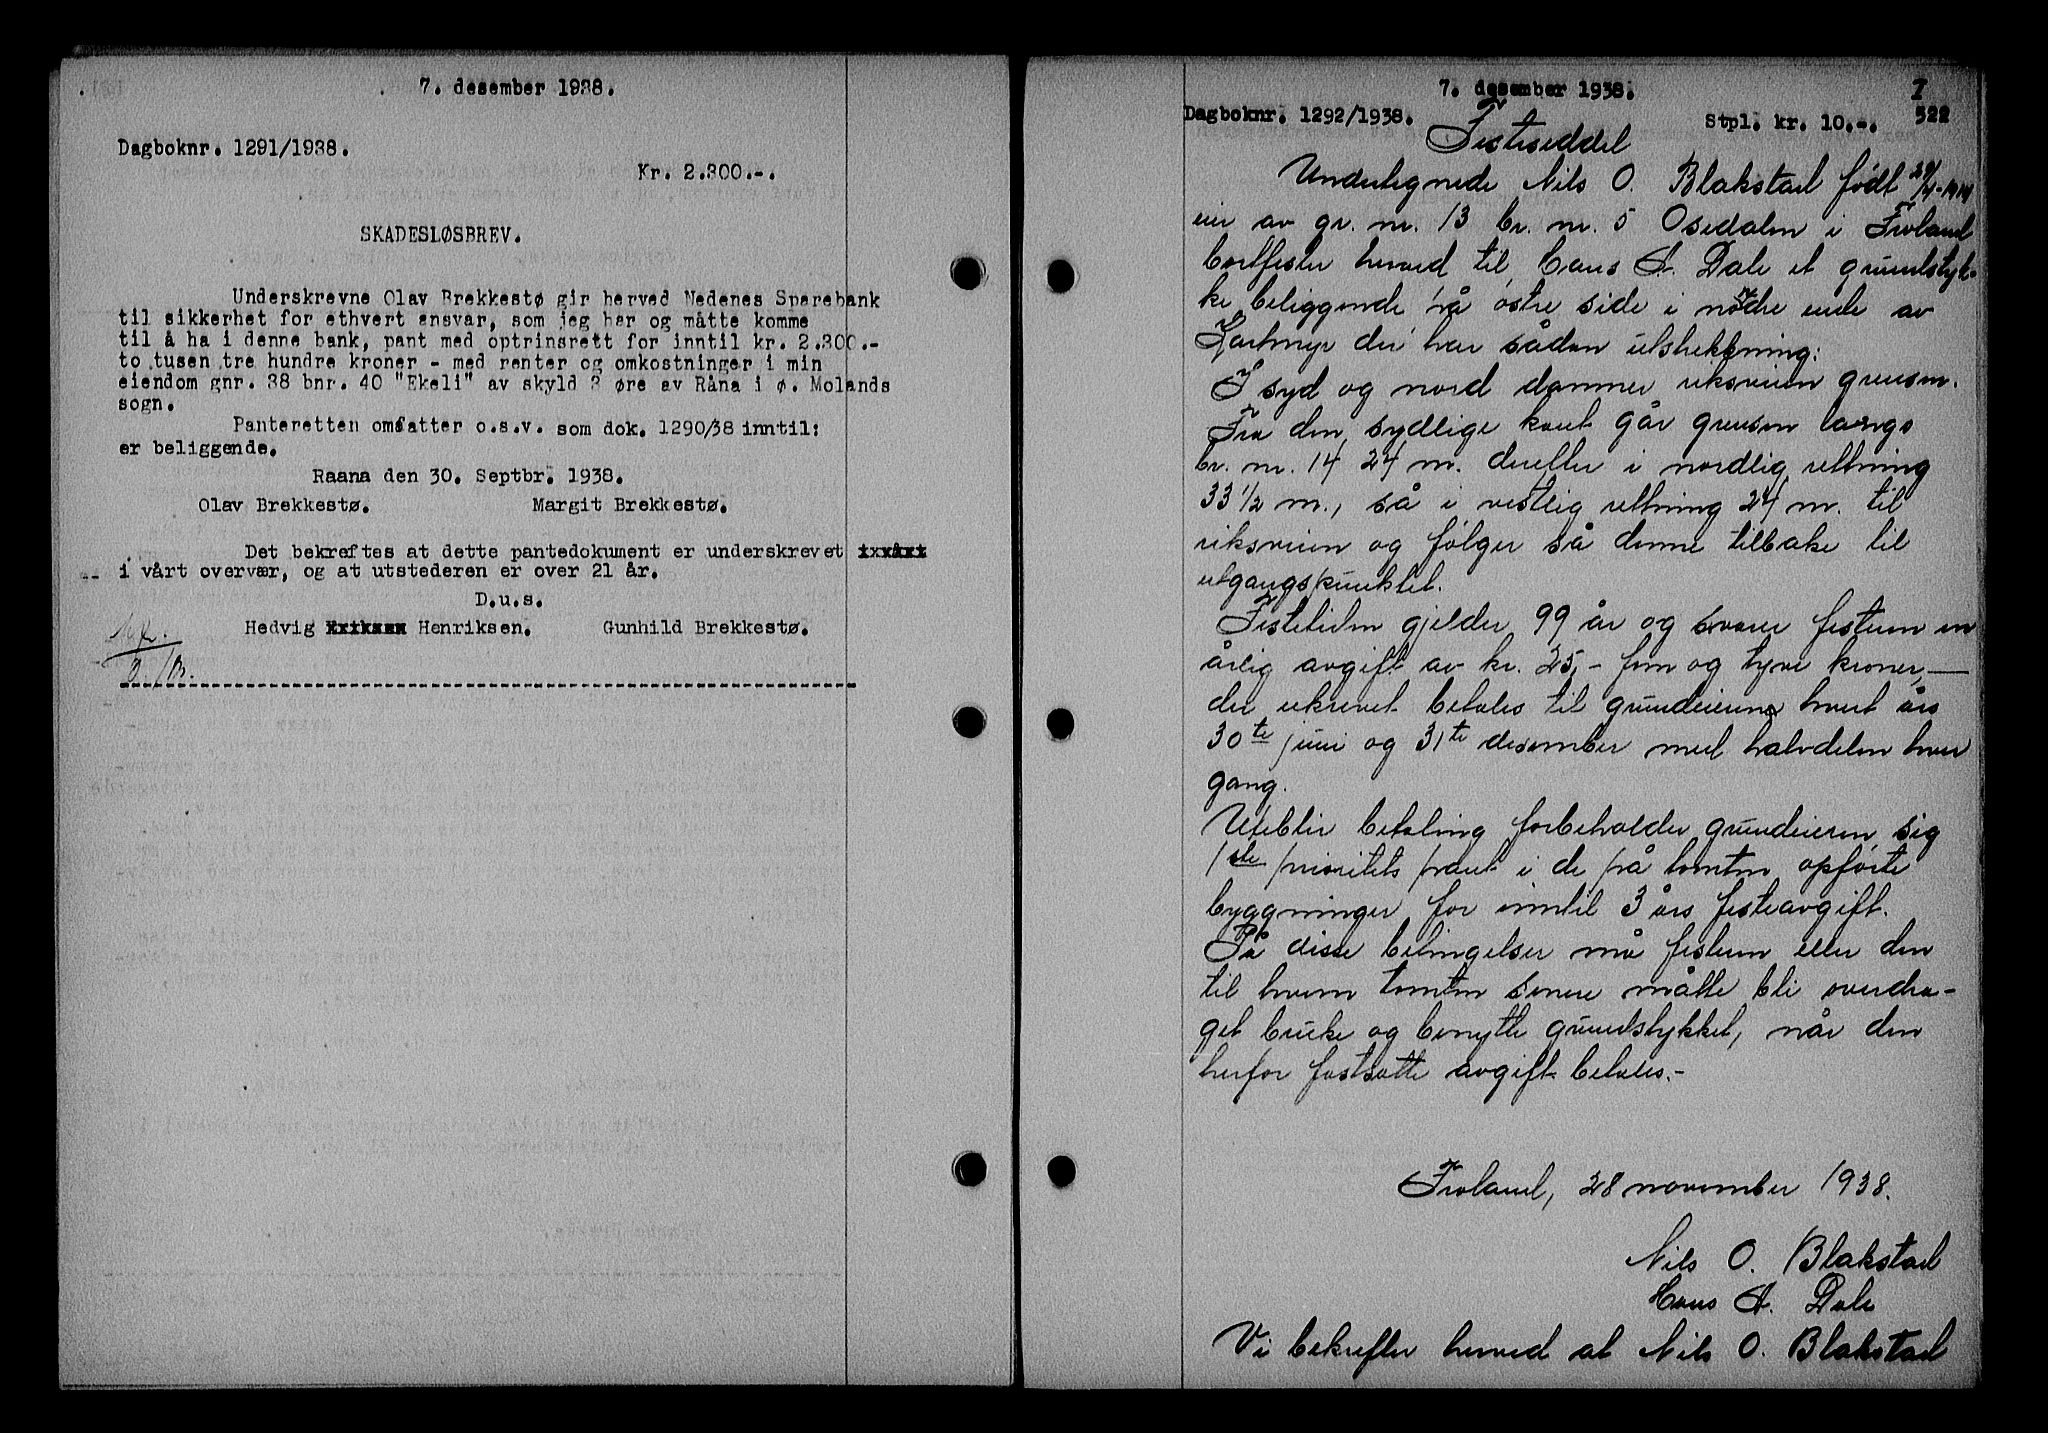 7. desember 1938.
Dagboknr. 1291/1938.
Kr. 2.300.-.
SKADESLØSBREV.
Underskrevne Olav Brekkestø gir herved Nedenes Sparebank
til sikkerhet for ethvert ansvar, som jeg har og måtte komme
til å ha i denne bank, pant med optrinsrett for inntil kr. 2.300.-
to tusen tre hundre kroner - med renter og omkostninger i min
eiendom gnr. 38 bnr. 40 "Ekeli" av skyld 3 øre av Råna i ø. Molands
sogn.
Panteretten omfatter o.s.v. som dok. 1290/38 inntil:
er beliggende.
Raana den 30. Septbr. 1938.
Olav Brekkestø. Margit Brekkestø.
Det bekreftes at dette pantedokument er underskrevet
i vårt overvær, og at utstederen er over 21 år.
D.u.s.
Hedvig Henriksen. Gunhild Brekkestø.
7. desember 1938.
I
522
Dagboknr. 1292/1938.
Stpl. kr. 10.-.
Festeseddel
Undertegnede Nils O. Blakstad født
eier av gr. nr. 13 br. nr. 5 Osedalen i Froland
bortfester herved til Hans A. Dale et grundstyk-
ke beliggende på østre side i nødre ende av
der har sådan utstrekkning:
I syd og nord danner riksveien grensen.
Fra den sydlige kant går grensen langs
br. nr. 14 24 m. derefter i nordlig rettning
33 1/2 m., så i vestlig rettning 24 m. til
riksveien og følger så denne tilbake til
utgangspunktet.
Festetiden gjelder 99 år og svarer festeren en
årlig avgift av kr. 25,- fem og tyve kroner,—
der ukrevet betales til grundeieren hvert års
30te juni og 31te desember med halvdelen hver
gang.
Uteblir betaling forbeholder grundeieren sig
1ste prioritets pant i de på tomten opførte
byggninger for inntil 3 års festeavgift.
På disse betingelser må festeren eller den
til hvem tomten senere måtte bli overdra-
get bruke og benytte grundstykket, når den
herfor fastsatte avgift betales.-
Froland, 28 november 1938.
Nils O. Blakstad
Hans A. Dale
Vi bekrefter herved at Nils O. Blakstad